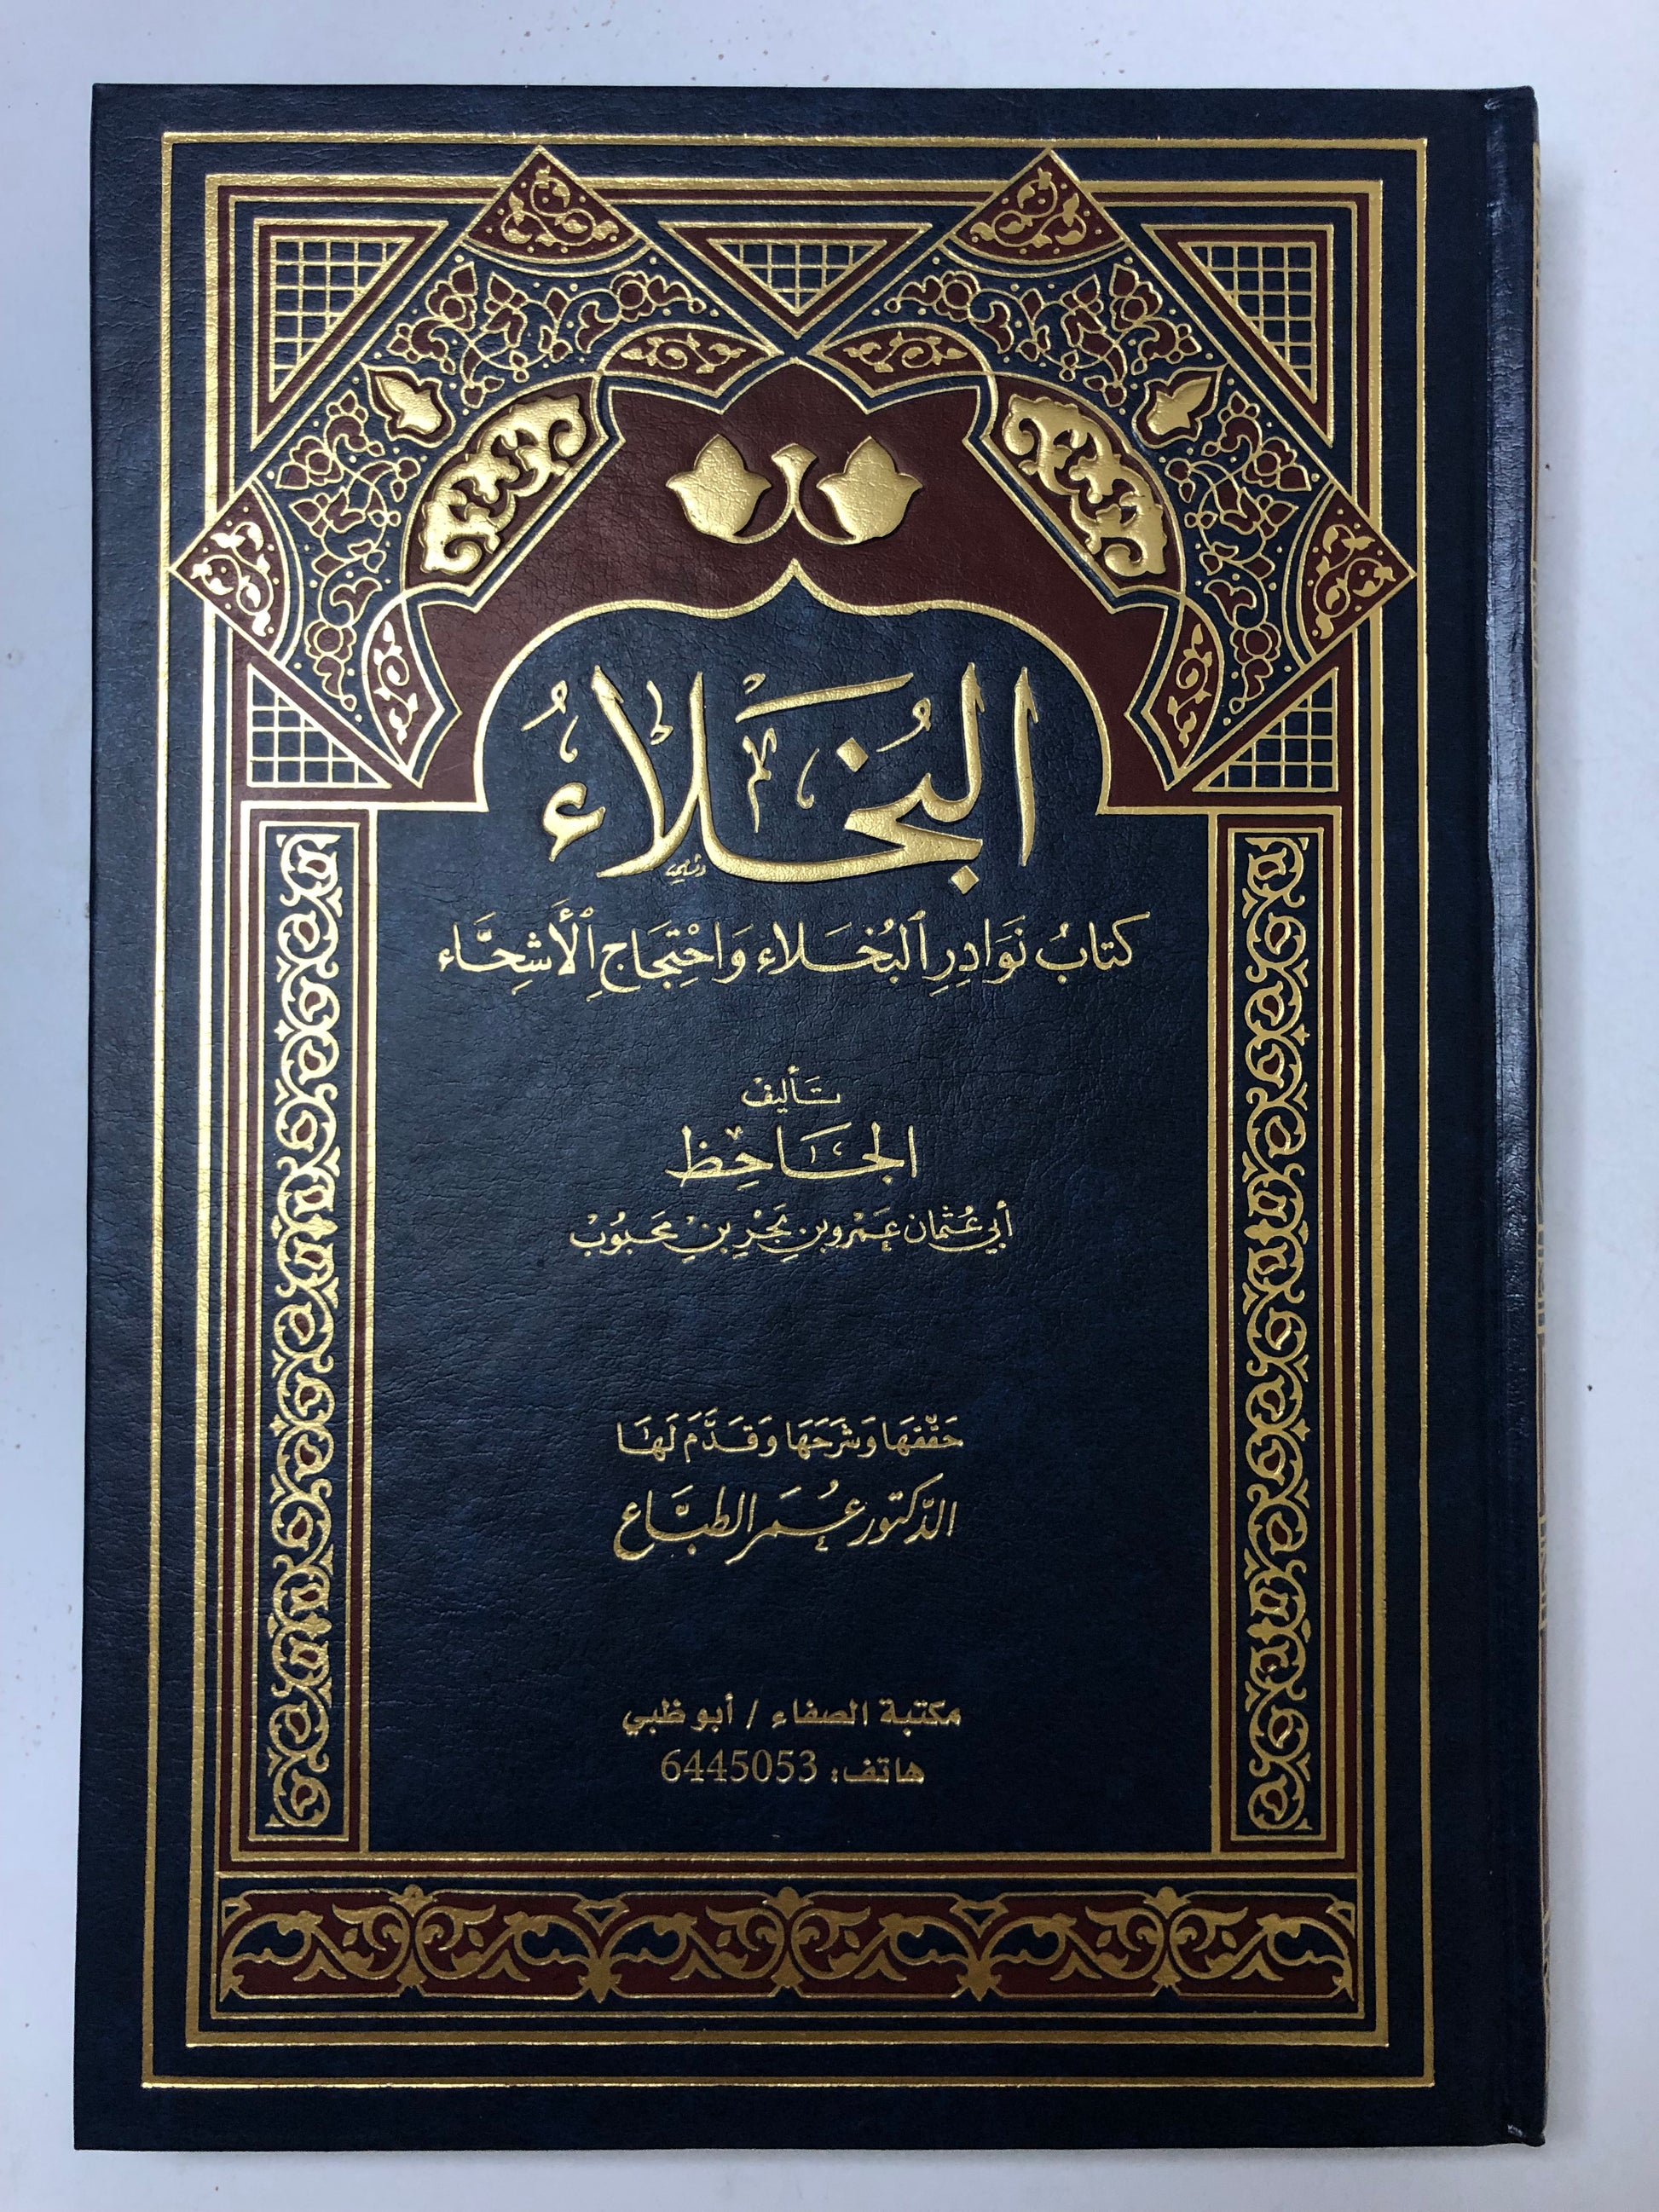 البُخَلَاءُ
كتابُ نَوَادِرِ ٱلبُخَلاء وَاحْتِجَاجِ ٱلأَشِحَّاء
تَأليفْ
الجَاحِظ
أبي عُثْمان عَمْرو بنِ بَحْرِ بنِ مَحبُوبْ
حَقّقهَا وَشَرَحَهَا وَقَدَّمَ لَهَا
الدّكتور عُمَر الطبَّاع
مكتبة الصفاء / أبو ظبي
هاتف: 6445053